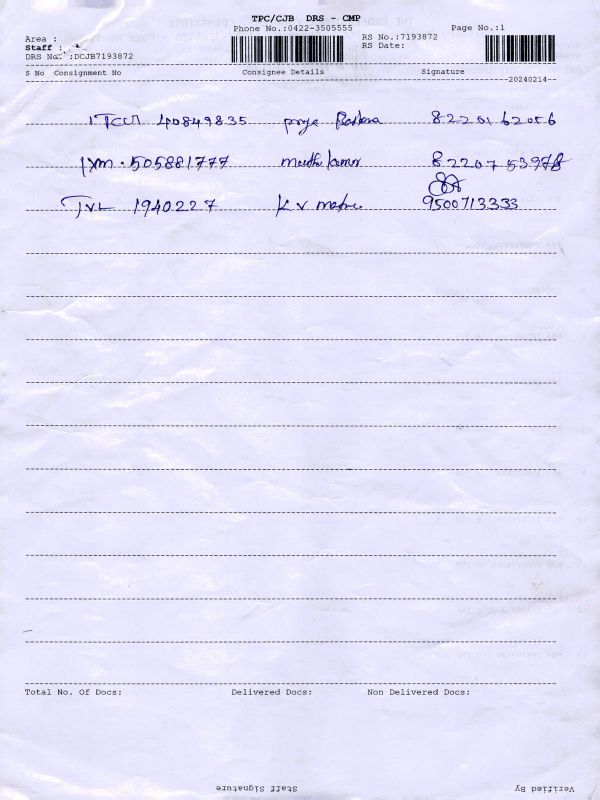 TPC/CJB DRS - CMP
Phone No.:0422-3505555
Page No.:1
Area :
RS No.:7193872
Staff :
RS Date:
DRS No. :DCJB7193872
S No Consignment No Consignee Details Signature
20240214
40849835 8220162056
505881777 kumar 8220753978
TVL 1940227 K V 9500713333
Total No. Of Docs: Delivered Docs: Non Delivered Docs:
Staff Signature Verified By